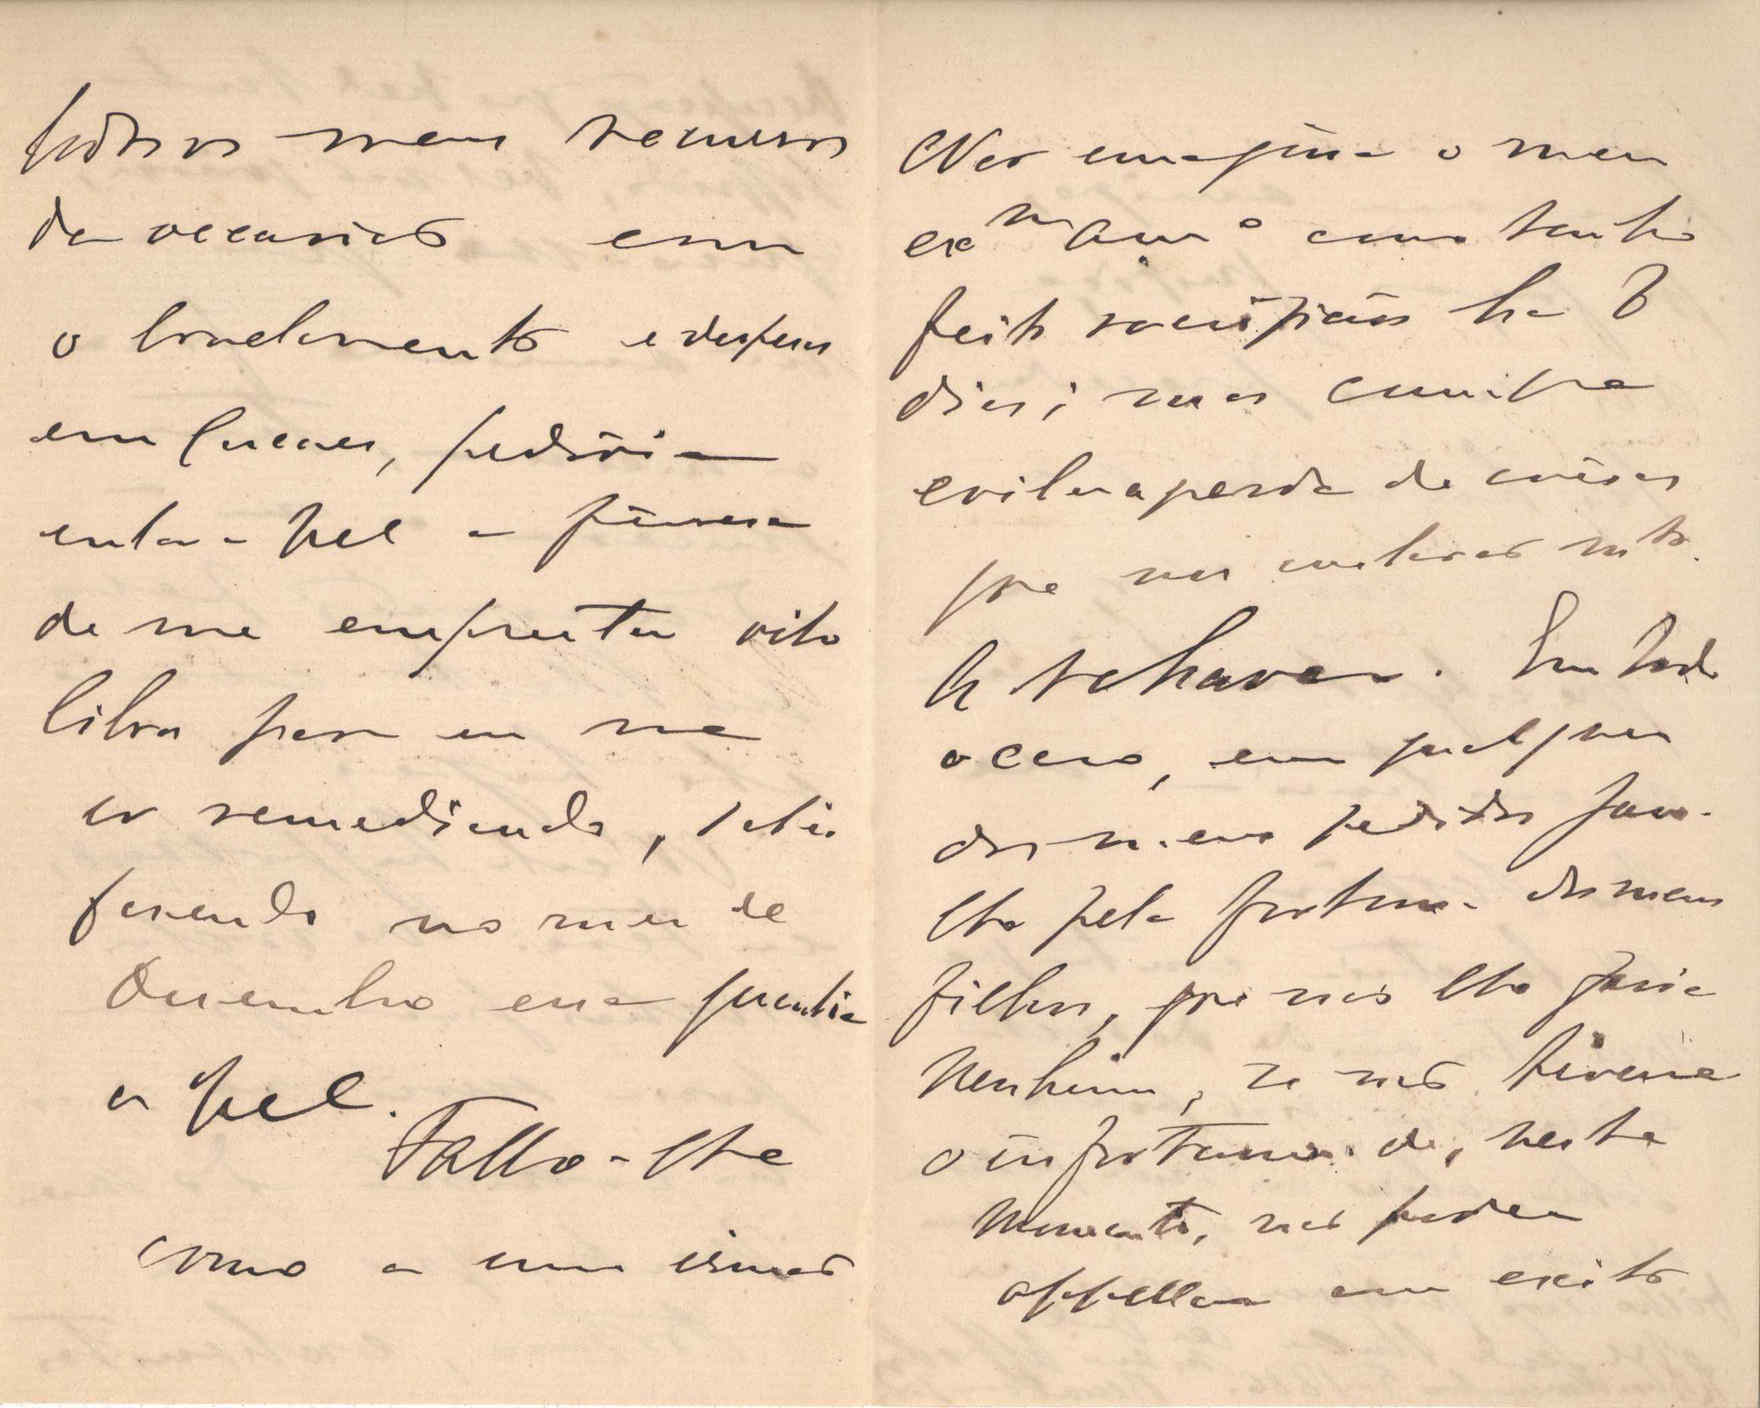 todos os meus recursos
da occasião com
o tratamento e despesas
em Lucas, pedia
então-lhe a fineza
de me emprestar oito
libras para eu me
ir remediando, satis
fazendo no mez de
Dezembro essa quantia
Fallo-lhe
como a um irmão
Não imagina o meu
exᵐᵒ amᵒ como tenho
feito sacrificios ha 8
dias; mas cumpre
evitar a perda de coisas
que nos custarão mᵗᵒ
a rehaver. Em todo
o caso, em qualquer
dos meus pedidos juro-
lho pela fortuna dos meus
filhos, que não lho faria
nenhum, se não tivesse
o infortunio de, neste
momento, não poder
appellar com exito